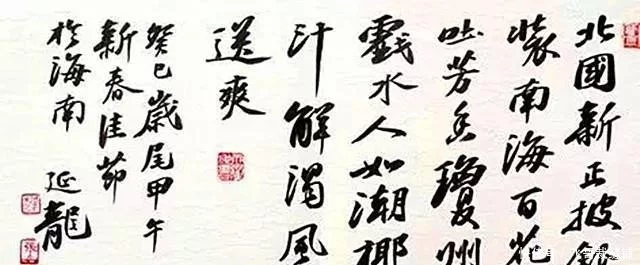 北國新正披銀
裝南海百花
吐芳香瓊州
戲水人如潮椰
汁解渴風
送爽
癸巳歲尾甲午
新春佳節
於海南 延龍